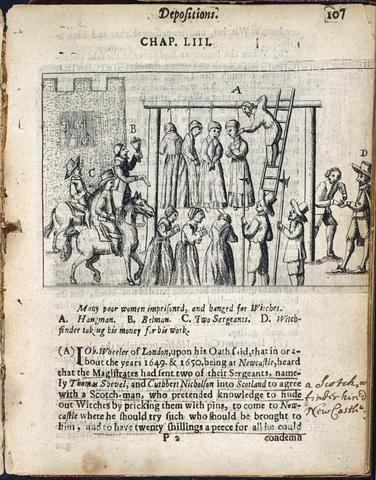 Depositions.
107
CHAP. LIII.
A
B
C
D
Many poor women imprisoned, and hanged for Witches.
A. Hangman. B. Belman. C. Two Sergeants. D. Witch-
finder taking his money for his work.
(A) IOh. Wheeler of London, upon his Oath said, that in or a-
bout the years 1649. & 1650. being at Newcastle, heard
that the Magistrates had sent two of their Sergeants, name-
ly Thomas Shevel, and Cuthbert Nicholson into Scotland to agree
with a Scotch-man, who pretended knowledge to finde
out Witches by pricking them with pins, to come to New-
castle where he should try such who should be brought to
him, and to have twenty shillings a peece for all he could
P 2
condemn
a Scotch w
finder hired
New Castle.